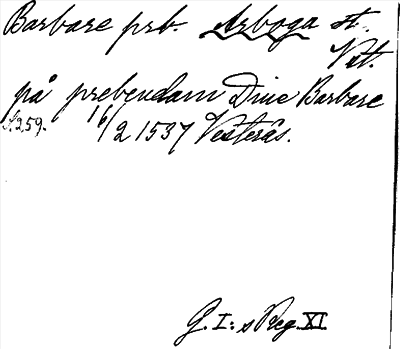 Barbare prb. Arboga st.
Vst.
på prebendam Diue Barbare
s. 259. 16/2 1537 Vesterås.
G. I: s Reg. XI.